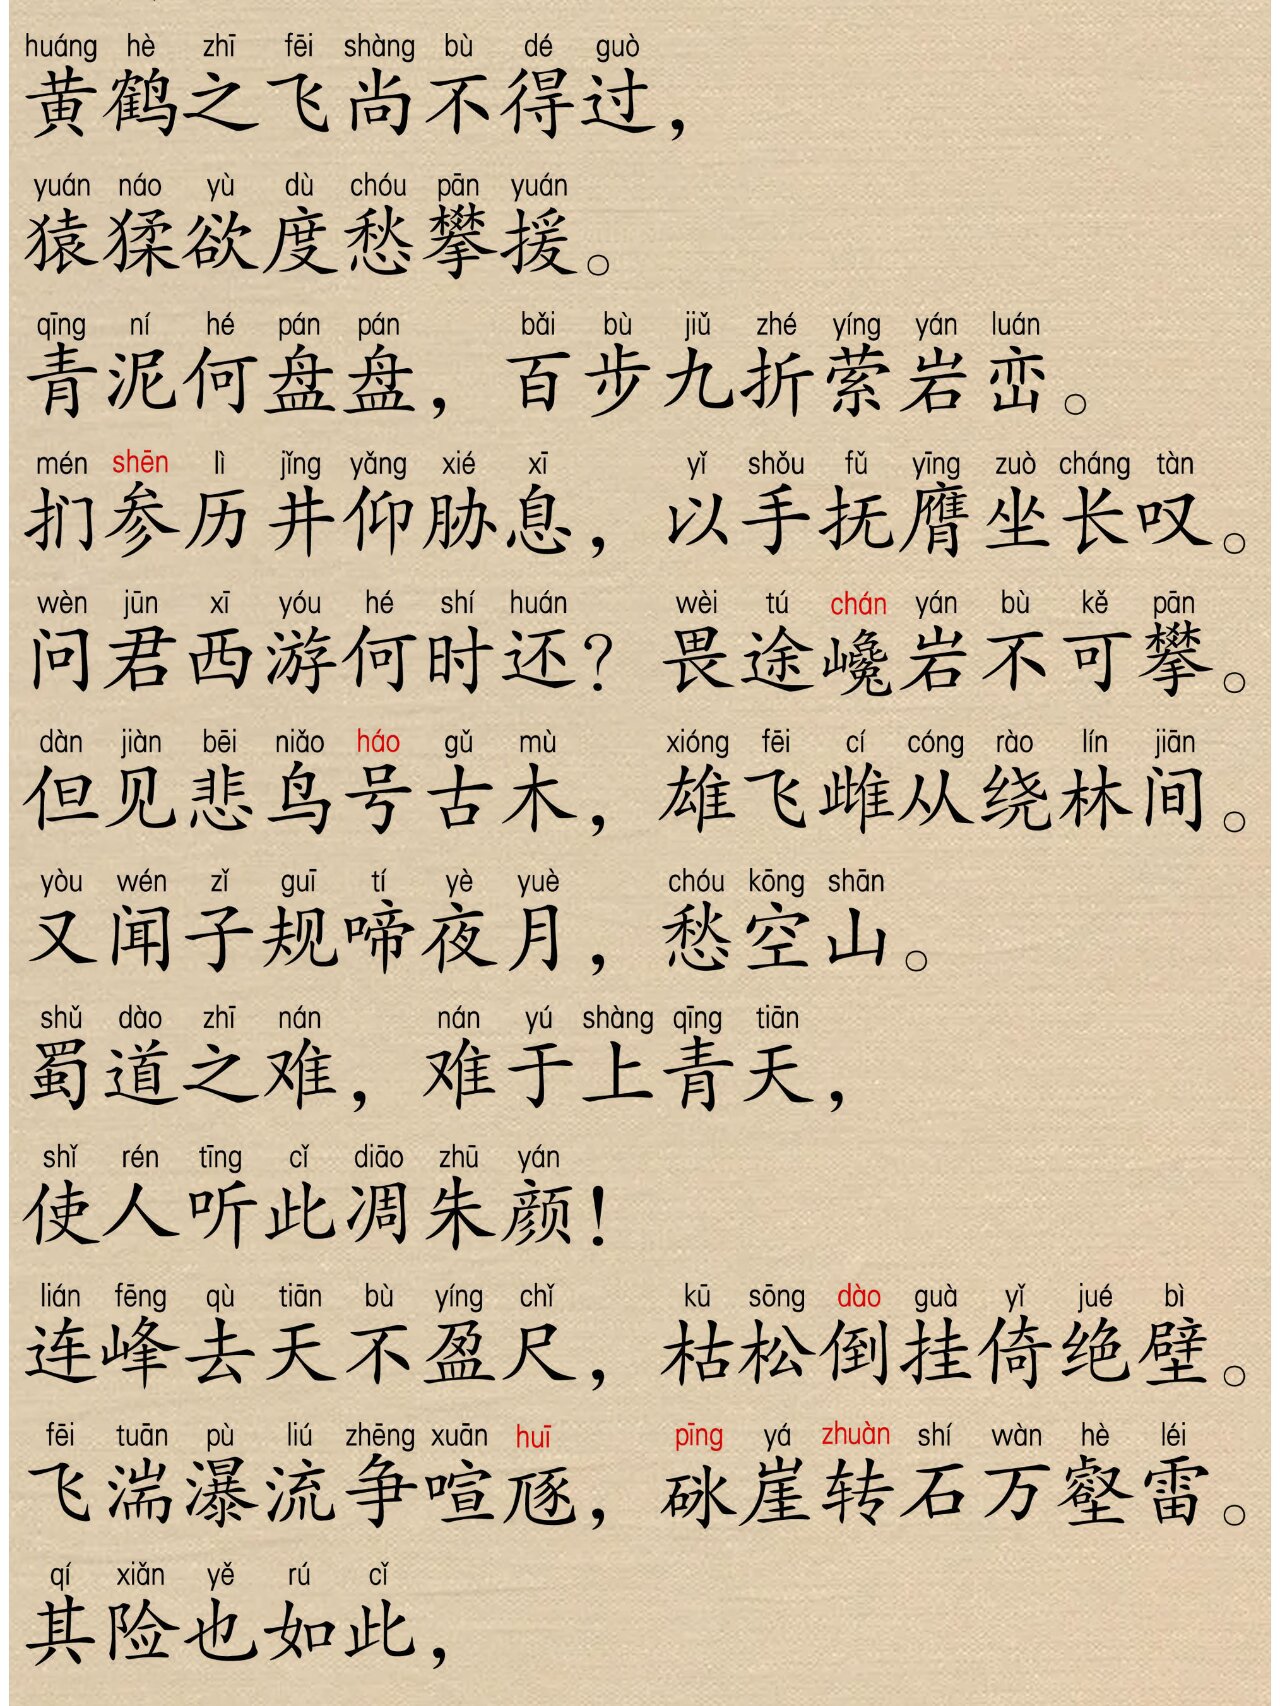 huáng hè zhī fēi shàng bù dé guò
黄鹤之飞尚不得过，
yuán náo yù dù chóu pān yuán
猿猱欲度愁攀援。
qīng ní hé pán pán bǎi bù jiǔ zhé yíng yán luán
青泥何盘盘，百步九折萦岩峦。
mén shēn lì jǐng yǎng xié xī yǐ shǒu fǔ yīng zuò cháng tàn
扪参历井仰胁息，以手抚膺坐长叹。
wèn jūn xī yóu hé shí huán wèi tú chán yán bù kě pān
问君西游何时还？畏途巉岩不可攀。
dàn jiàn bēi niǎo háo gǔ mù xióng fēi cí cóng rào lín jiān
但见悲鸟号古木，雄飞雌从绕林间。
yòu wén zǐ guī tí yè yuè chóu kōng shān
又闻子规啼夜月，愁空山。
shǔ dào zhī nán nán yú shàng qīng tiān
蜀道之难，难于上青天，
shǐ rén tīng cǐ diāo zhū yán
使人听此凋朱颜！
lián fēng qù tiān bù yíng chǐ kū sōng dào guà yǐ jué bì
连峰去天不盈尺，枯松倒挂倚绝壁。
fēi tuān pù liú zhēng xuān huī pīng yá zhuàn shí wàn hè léi
飞湍瀑流争喧豗，砯崖转石万壑雷。
qí xiǎn yě rú cǐ
其险也如此，